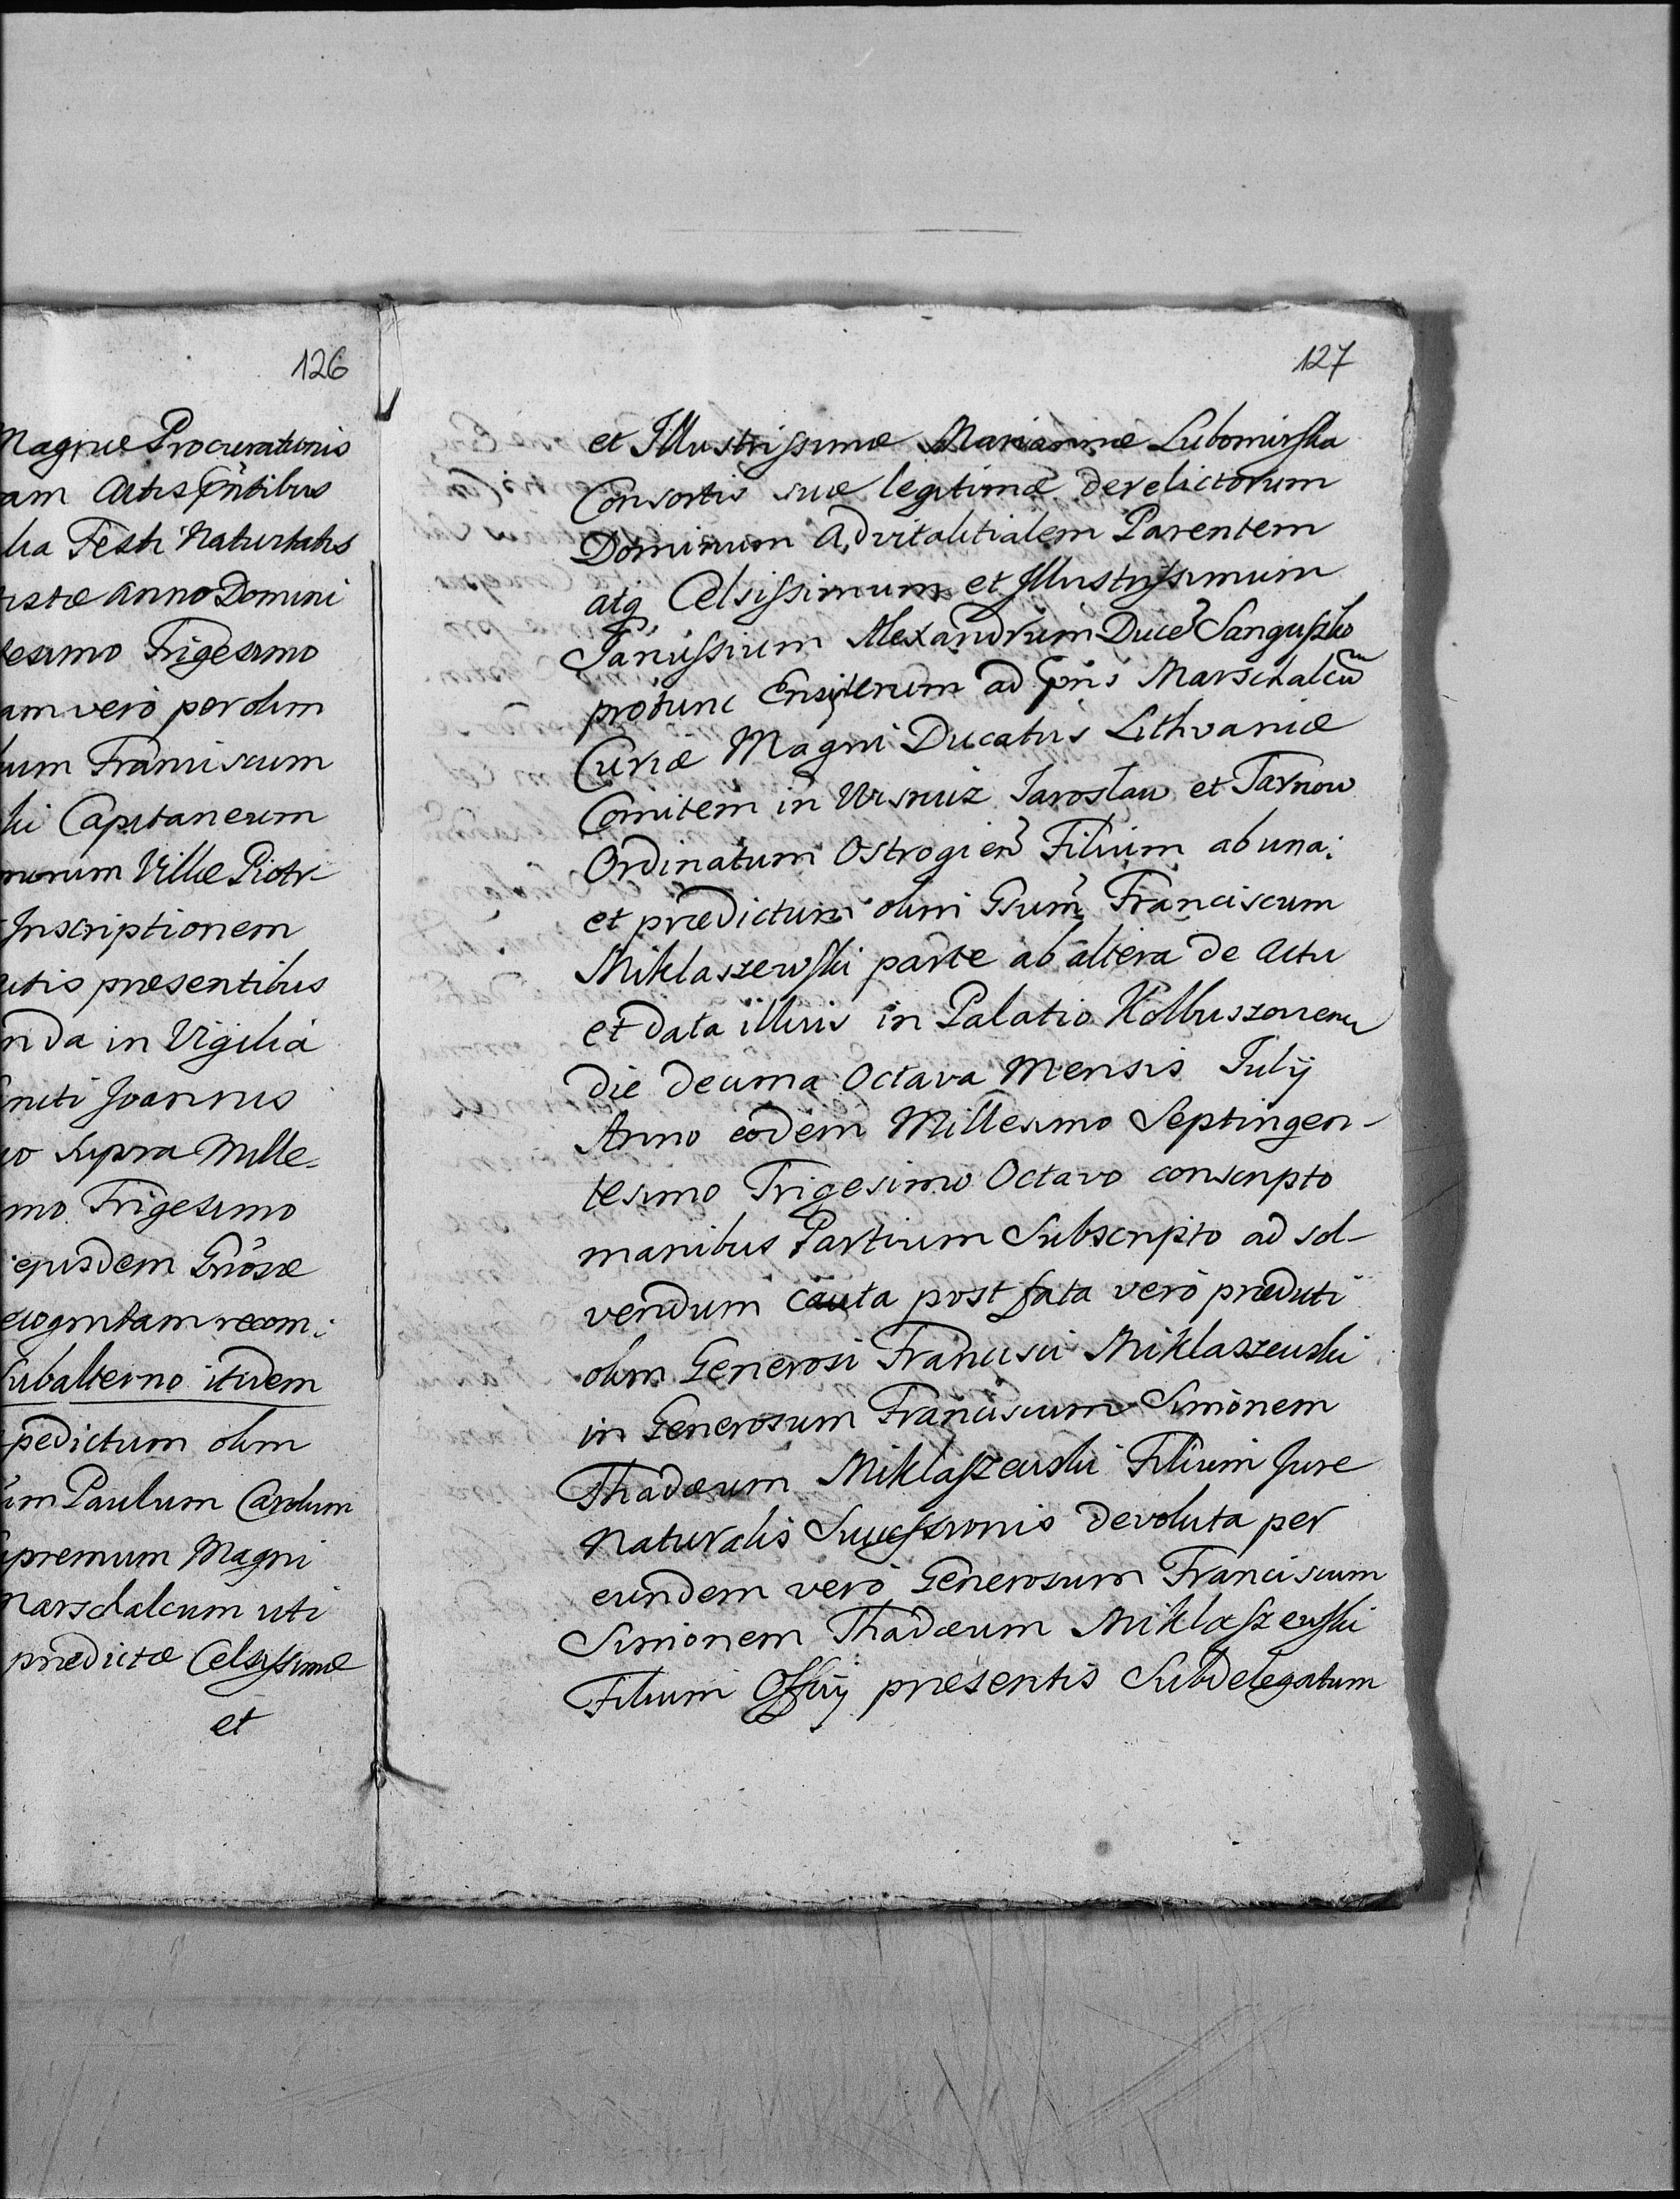 126
Magnæ Procurationis
am Actis pntibus
lia Festi Nativitatis
tistæ Anno Domini
tesimo Trigesimo
am vero per olim
sum Franciscum
ski Capitaneum
norum Villæ Piotr-
Inscriptionem
Actis præsentibus
nda in Vigilia
Sancti Joannis
uo supra Mille-
mo Trigesimo
ejusdem Gnosæ
ecognitam recom:
Subalterno itidem
pedictum olim
um Paulum Carolum
upremum Magni
Marschalcum uti
prædictæ Celsissimæ
et
127
et Illustrissimæ Mariannæ Lubomirska
Consortis suæ legitimæ derelictorum
Dominum Advitalitialem Parentem
atq Celsissimum et Illustrissimum
Janussium Alexandrum Duce Sanguszko
protunc Ensiferum ad pns Marschalcu
Curiæ Magni Ducatus Lithvaniæ
Comitem in Wisnicz Jaroslaw et Tarnow
Ordinatum Ostrogien Filium ab una:
et prædictum olim Gsum Franciscum
Miklaszewski parte ab altera de Actu
et data illius in Palatio Kolbuszoviensi
die decima Octava Mensis Julij
Anno eodem Millesimo Septingen-
tesimo Trigesimo Octavo conscripto
manibus Partium Subscripto ad sol-
vendum cauta post fata vero prædicti
olim Generosi Francisci Miklaszewski
in Generosum Franciscum Simonem
Thadæum Miklaszewski Filium Jure
Naturalis Successionis devoluta per
eundem vero Generosum Franciscum
Simonem Thadæum Miklaszewski
Filium Officij præsentis Subdelegatum